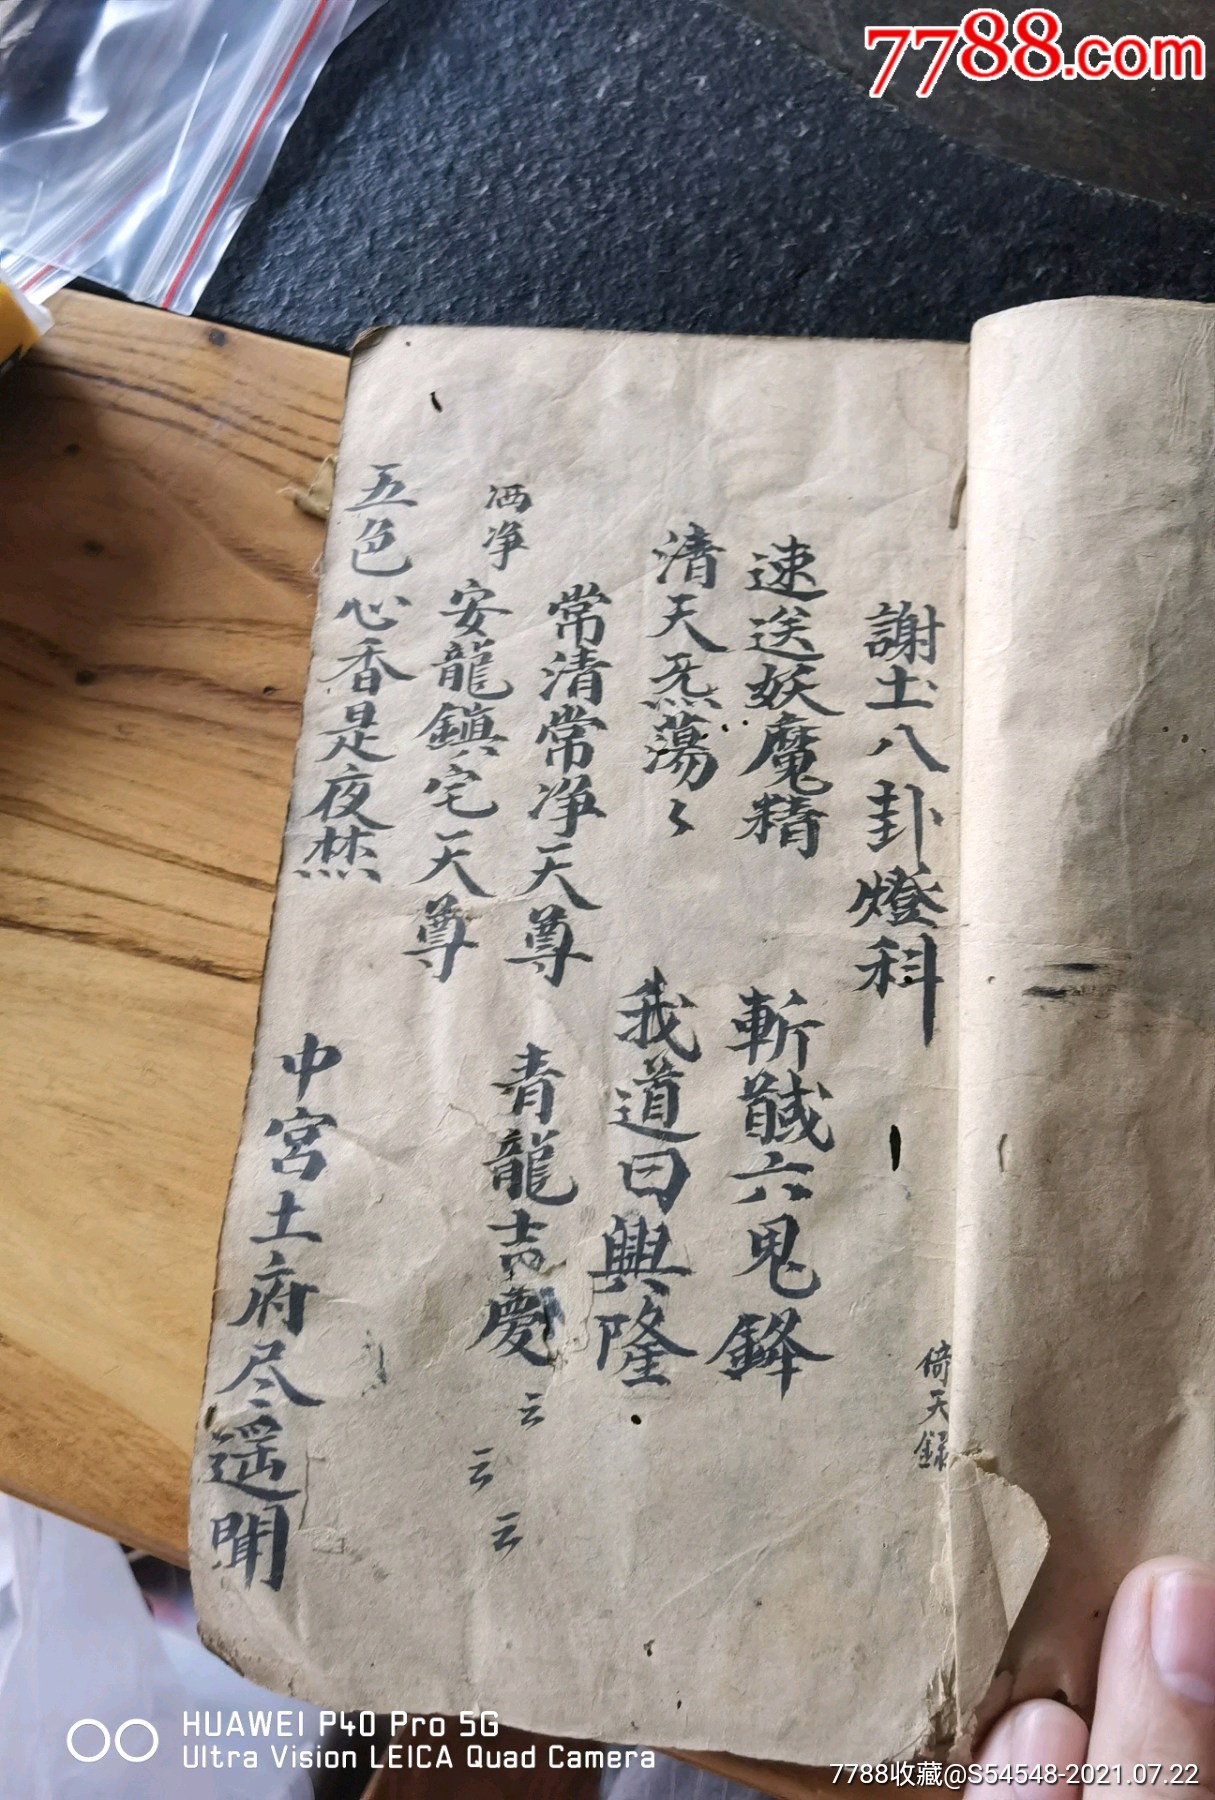 7788.com
謝土八卦燈科
倚天錄
速送妖魔精 斬馘六鬼鋒
清天炁蕩〻 我道曰興隆
常清常净天尊 青龍吉慶云云云
洒净 安龍鎮宅天尊
五色心香是夜焚 中宮土府尽遥聞
HUAWEI P40 Pro 5G
Ultra Vision LEICA Quad Camera
7788收藏@S54548-2021.07.22